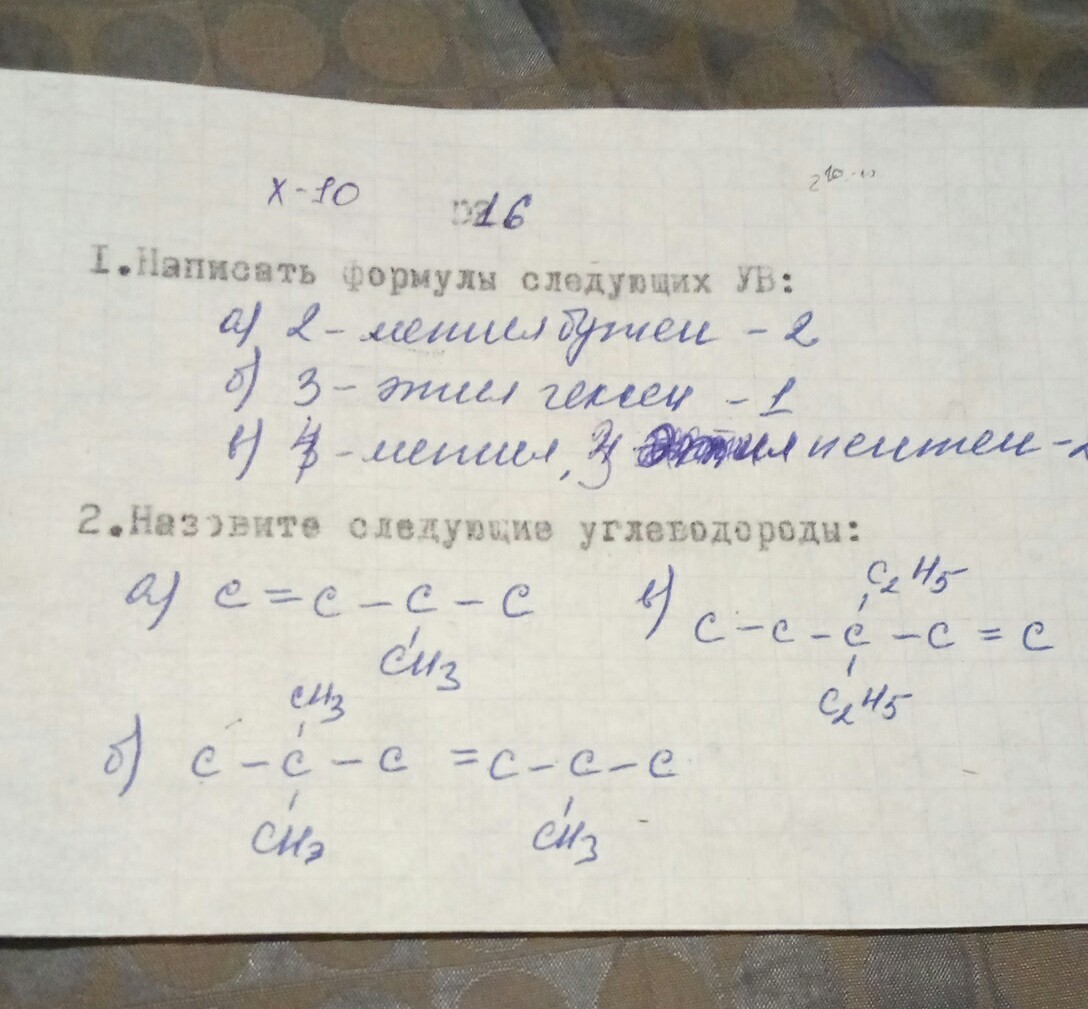 Х-10
16
1.Написать формулы следующих УВ:
а) 2-метилбутен-2
б) 3-этил гексен-1
в) 4-метил, пентен-2
2.Назовите следующие углеводороды:
а) C=C-C-C
CH3
в) C-C-C-C=C
C2H5
C2H5
б) C-C-C=C-C-C
CH3
CH3
CH3